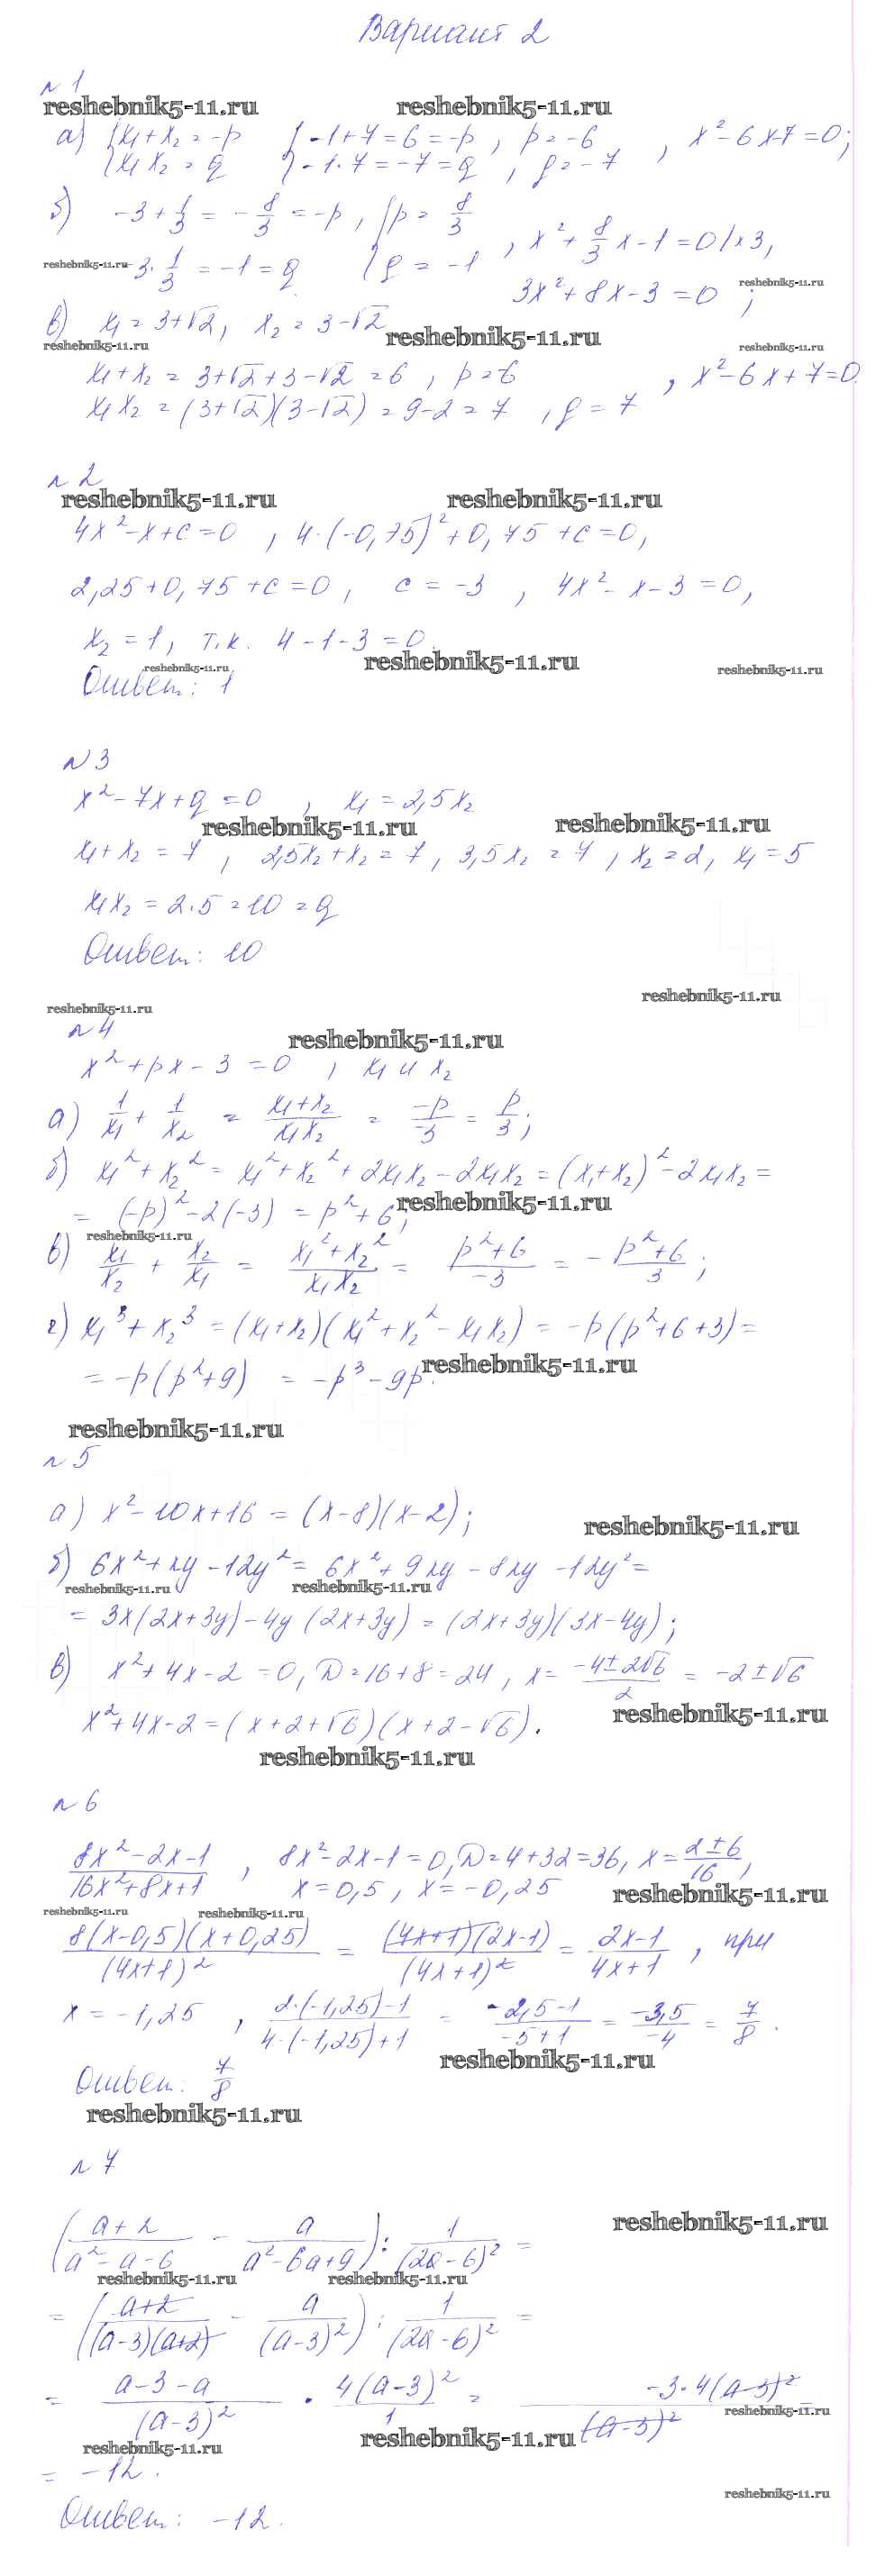 Вариант 2
№1
reshebnik5-11.ru reshebnik5-11.ru
а) {x₁+x₂=-p {-1+7=6=-p, p=-6, x²-6x-7=0;
{x₁x₂=q {-1·7=-7=q, q=-7
б) -3+1/3 = -8/3 = -p, {p=8/3
reshebnik5-11.ru -3·1/3 = -1 = q {q=-1, x²+8/3x-1=0/×3,
3x²+8x-3=0; reshebnik5-11.ru
в) x₁=3+√2, x₂=3-√2 reshebnik5-11.ru
reshebnik5-11.ru reshebnik5-11.ru
x₁+x₂=3+√2+3-√2=6, p=6, x²-6x+7=0.
x₁x₂=(3+√2)(3-√2)=9-2=7, q=7
№2
reshebnik5-11.ru reshebnik5-11.ru
4x²-x+c=0, 4·(-0,75)²+0,75+c=0,
2,25+0,75+c=0, c=-3, 4x²-x-3=0,
x₂=1, т.к. 4-1-3=0.
reshebnik5-11.ru reshebnik5-11.ru reshebnik5-11.ru
Ответ: 1
№3
x²-7x+q=0, x₁=2,5x₂
reshebnik5-11.ru reshebnik5-11.ru
x₁+x₂=7, 2,5x₂+x₂=7, 3,5x₂=7, x₂=2, x₁=5
x₁x₂=2·5=10=q
Ответ: 10
reshebnik5-11.ru reshebnik5-11.ru
№4 reshebnik5-11.ru
x²+px-3=0, x₁ и x₂
а) 1/x₁ + 1/x₂ = (x₁+x₂)/(x₁x₂) = -p/-3 = p/3;
б) x₁²+x₂²=x₁²+x₂²+2x₁x₂-2x₁x₂=(x₁+x₂)²-2x₁x₂=
=(-p)²-2(-3)=p²+6; reshebnik5-11.ru
reshebnik5-11.ru
в) x₁/x₂ + x₂/x₁ = (x₁²+x₂²)/(x₁x₂) = (p²+6)/-3 = -(p²+6)/3;
г) x₁³+x₂³=(x₁+x₂)(x₁²+x₂²-x₁x₂)=-p(p²+6+3)=
=-p(p²+9)=-p³-9p. reshebnik5-11.ru
reshebnik5-11.ru
№5
а) x²-10x+16=(x-8)(x-2); reshebnik5-11.ru
б) 6x²+xy-12y²=6x²+9xy-8xy-12y²=
reshebnik5-11.ru reshebnik5-11.ru
=3x(2x+3y)-4y(2x+3y)=(2x+3y)(3x-4y);
в) x²+4x-2=0, D=16+8=24, x=(-4±2√6)/2=-2±√6
x²+4x-2=(x+2+√6)(x+2-√6). reshebnik5-11.ru
reshebnik5-11.ru
№6
(8x²-2x-1)/(16x²+8x+1), 8x²-2x-1=0, D=4+32=36, x=(2±6)/16,
x=0,5, x=-0,25 reshebnik5-11.ru
reshebnik5-11.ru reshebnik5-11.ru
8(x-0,5)(x+0,25)/(4x+1)² = (4x+1)(2x-1)/(4x+1)² = (2x-1)/(4x+1), при
x=-1,25, (2·(-1,25)-1)/(4·(-1,25)+1) = (-2,5-1)/(-5+1) = -3,5/-4 = 7/8.
reshebnik5-11.ru
Ответ: 7/8
reshebnik5-11.ru
№7
reshebnik5-11.ru
((a+2)/(a²-a-6) - a/(a²-6a+9)) : 1/(2a-6)² =
reshebnik5-11.ru reshebnik5-11.ru
= ((a+2)/((a-3)(a+2)) - a/(a-3)²) : 1/(2a-6)² =
= (a-3-a)/(a-3)² · 4(a-3)²/1 = -3·4(a-3)²/(a-3)² =
reshebnik5-11.ru
reshebnik5-11.ru reshebnik5-11.ru
= -12.
reshebnik5-11.ru
Ответ: -12.